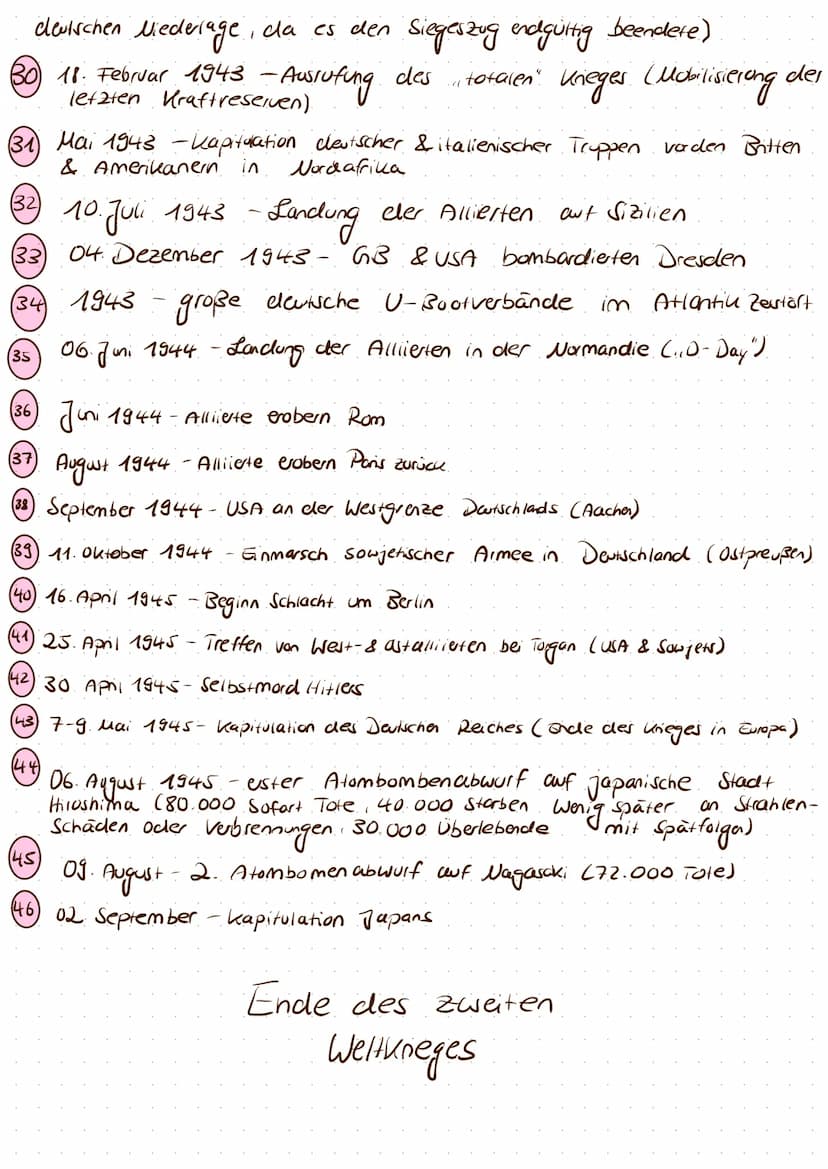 deutschen Niederlage, da es den Siegeszug endgültig beendete)
30 18. Februar 1943 – Ausrufung des „totalen" Krieges (Mobilisierung der
letzten Kraftreserven)
31 Mai 1943 – Kapitulation deutscher & italienischer Truppen vor den Britten
& Amerikanern in Nordafrika
32 10. Juli 1943 – Landung der Allierten auf Sizilien
33 04. Dezember 1943 – GB & USA bombardierten Dresden
34 1943 – große deutsche U-Bootverbände im Atlantik zerstört
35 06. Juni 1944 – Landung der Alliierten in der Normandie („D-Day")
36 Juni 1944 – Alliierte erobern Rom
37 August 1944 – Alliierte erobern Paris zurück
38 September 1944 – USA an der Westgrenze Deutschlads (Aachen)
39 11. Oktober 1944 – Einmarsch sowjetischer Armee in Deutschland (Ostpreußen)
40 16. April 1945 – Beginn Schlacht um Berlin
41 25. April 1945 – Treffen von West- & Ostalliierten bei Torgau (USA & Sowjets)
42 30 April 1945 – Selbstmord Hitlers
43 7-9. Mai 1945 – Kapitulation des Deutschen Reiches (Ende des Krieges in Europa)
44
06. August 1945 – erster Atombombenabwurf auf japanische Stadt
Hiroshima (80.000 Sofort Tote, 40.000 starben wenig später an Strahlen-
Schäden oder Verbrennungen, 30.000 Überlebende mit Spätfolgen)
45 09. August – 2. Atombomenabwurf auf Nagasaki (72.000 Tote)
46 02. September – Kapitulation Japans
Ende des zweiten
Weltkrieges